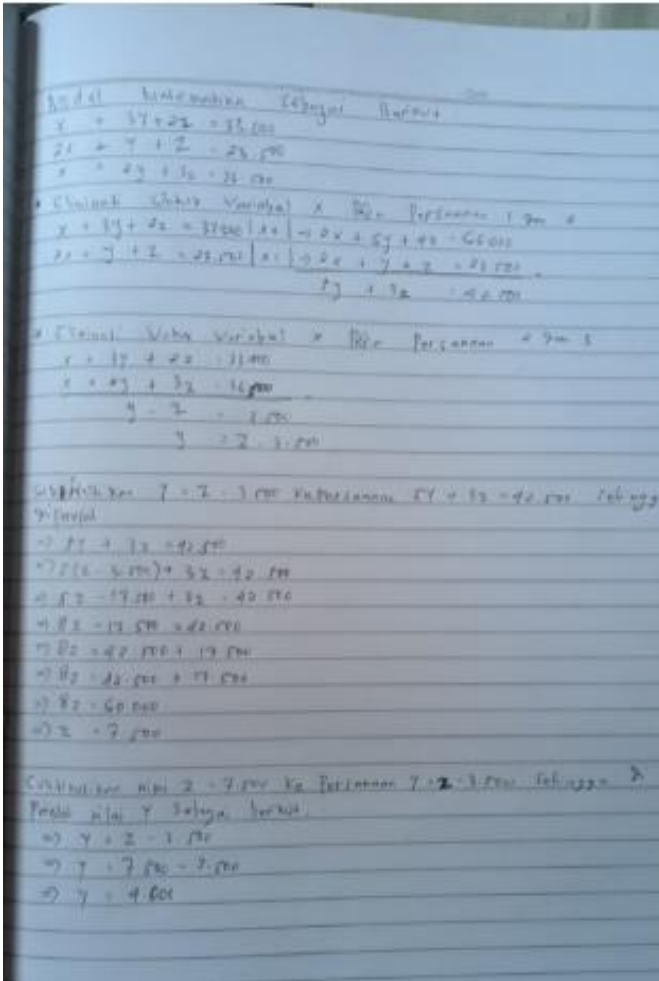 Model Matematika Sebagai Berikut
x + 3y + 2z = 33.000
2x + y + z = 23.500
x + 2y + 3z = 36.500
• Eliminasi Untuk Variabel x Dari Persamaan 1 dan 2
x + 3y + 2z = 33.000 |x2| → 2x + 6y + 4z = 66.000
2x + y + z = 23.500 |x1| → 2x + y + z = 23.500 -
5y + 3z = 42.500
• Eliminasi Untuk Variabel x Dari Persamaan 3
x + 3y + 2z = 33.000
x + 2y + 3z = 36.500 -
y - z = 3.500
y = z - 3.500
Substitusikan y = z - 3.500 Kepersamaan 5y + 3z = 42.500 sehingga
=> 5y + 3z = 42.500
=> 5(z - 3.500) + 3z = 42.500
=> 5z - 17.500 + 3z = 42.500
=> 8z - 17.500 = 42.500
=> 8z = 42.500 + 17.500
=> 8z = 42.500 + 17.500
=> 8z = 60.000
=> z = 7.500
Substitusikan nilai z = 7.500 Ke Persamaan y = z - 3.500 sehingga
nilai y Sebagai berikut.
=> y = z - 3.500
=> y = 7.500 - 3.500
=> y = 4.000